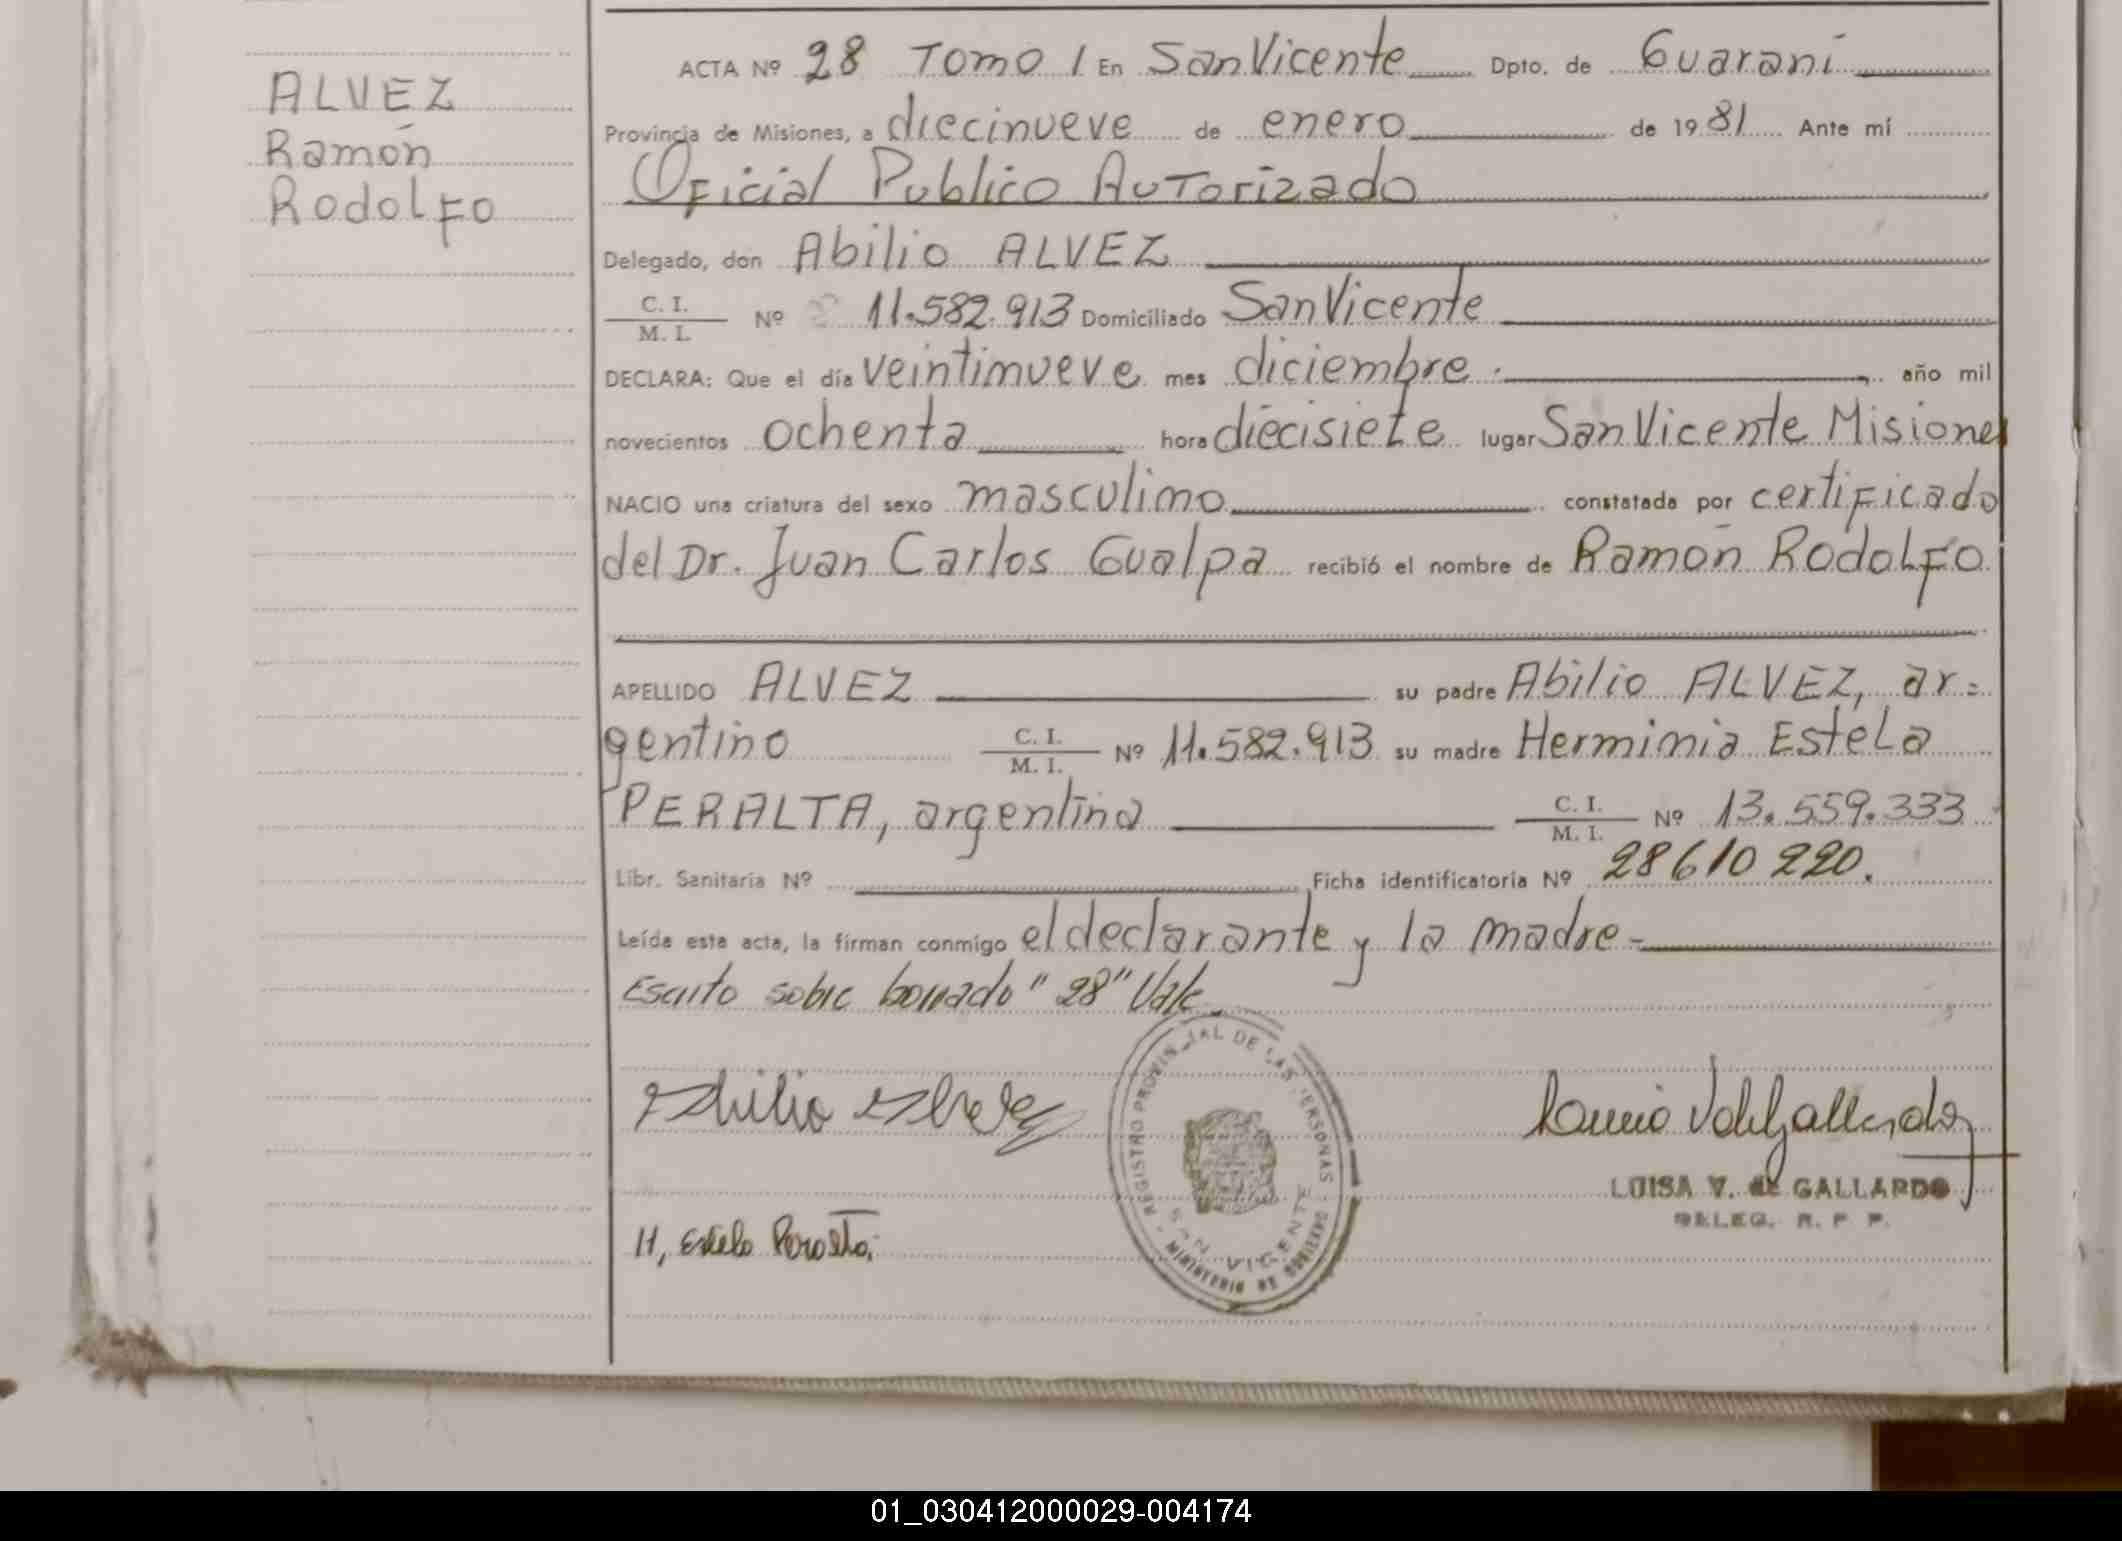 ALVEZ
Ramón
Rodolfo
ACTA Nº 28 Tomo 1 En San Vicente Dpto. de Guaraní
Provincia de Misiones, a diecinueve de enero de 1981 Ante mí
Oficial Publico Autorizado
Delegado, don Abilio ALVEZ
C. I.
M. I. Nº 11.582.913 Domiciliado San Vicente
DECLARA: Que el día veintinueve mes diciembre.- año mil
novecientos ochenta hora diecisiete lugar San Vicente Misiones
NACIO una criatura del sexo masculino constatada por certificado
del Dr. Juan Carlos Gualpa recibió el nombre de Ramón Rodolfo
APELLIDO ALVEZ su padre Abilio ALVEZ, ar=
gentino C. I.
M. I. Nº 11.582.913 su madre Herminia Estela
PERALTA, argentina C. I.
M. I. Nº 13.559.333
Libr. Sanitaria Nº Ficha identificatoria Nº 28610220.
Leída esta acta, la firman conmigo el declarante y la madre.-
Escrito sobre borrado "28" Vale
REGISTRO PROVINCIAL DE LAS PERSONAS
SAN VICENTE
MINISTERIO DE GOBIERNO
LUISA V. de GALLARDO
DELEG. R. P. P.
H, Estela Peralta
01_030412000029-004174